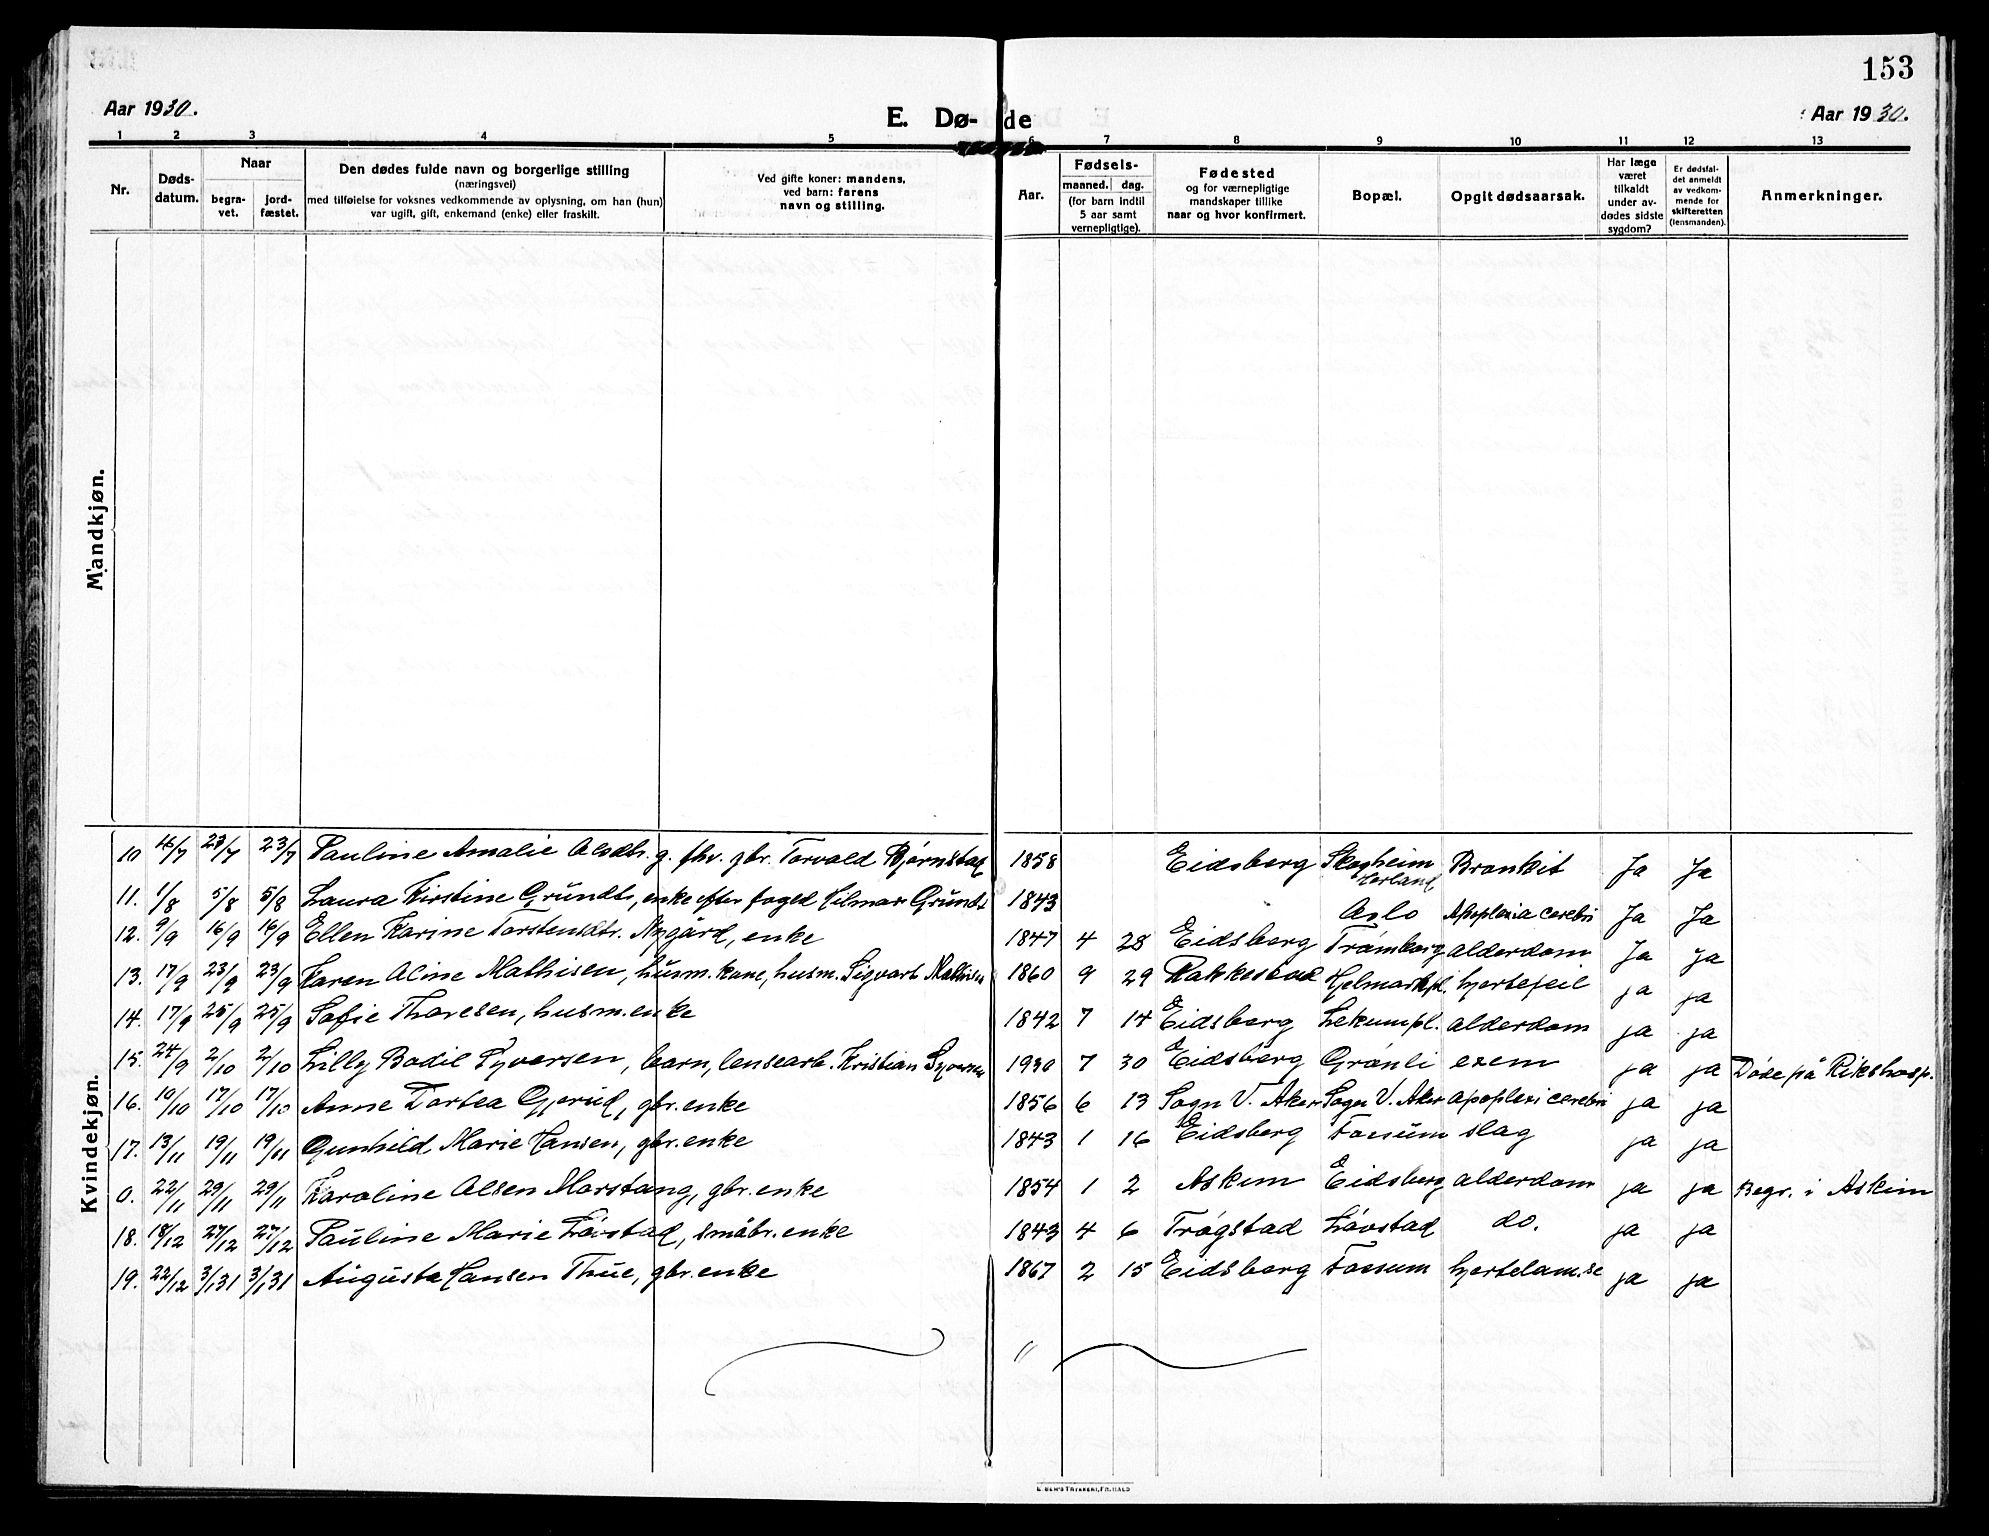 153
Aar 1930.
E. Dø-de
Aar 1930.
1 2 3 4 5 6 7 8 9 10 11 12 13
Nr.
Døds-datum.
Naar
begra-vet.
jord-fæstet.
Den dødes fulde navn og borgerlige stilling
(næringsvei)
med tilføielse for voksnes vedkommende av oplysning, om han (hun)
var ugift, gift, enkemand (enke) eller fraskilt.
Ved gifte koner: mandens,
ved barn: farens
navn og stilling.
Aar.
Fødsels-
maaned. dag.
(for barn indtil
5 aar samt
vernepligtige).
Fødested
og for værnepligtige
mandskaper tillike
naar og hvor konfirmert.
Bopæl.
Opgit dødsaarsak.
Har læge
været
tilkaldt
under av-
dødes sidste
sygdom?
Er dødsfal-
det anmeldt
av vedkom-
mende for
skifteretten
(lensmanden).
Anmerkninger.
Mandkjøn.
Kvindekjøn.
10 16/7 23/7 23/7 Pauline Amalie Olsdtr. g. fhv. gbr. Torvald Bjørnstad 1858 Eidsberg Skogheim Bronkit Ja Ja
11. 1/8 5/8 5/8 Laura Kirstine Grundt, enke efter foged Hilmar Grundt 1843 Oslo Apoplexia cerebri Ja Ja
12. 9/9 16/9 16/9 Ellen Karine Torstensdtr. Nygård, enke 1847 4 28 Eidsberg Trømborg alderdom Ja Ja
13. 17/9 23/9 23/9 Karen Oline Mathisen, husm. kone, husm. Sigvart Mathisen 1860 9 29 Rakkestad Hjelmarkpl. hjertefeil ja ja
14. 17/9 25/9 25/9 Sofie Thoresen, husm. enke 1842 7 14 Eidsberg Lekumpl. alderdom ja ja
15. 24/9 2/10 2/10 Lilly Bodil Syversen, barn, lensearb. Kristian Syversen 1930 7 30 Eidsberg Grønli exem ja ja Døde på Rikshosp.
16. 10/10 17/10 17/10 Anne Dortea Gjerud, gbr. enke 1856 6 13 Sogn V. Aker Sogn V. Aker apoplexi cerebri ja ja
17. 13/11 19/11 19/11 Gunhild Marie Hansen, gbr. enke 1843 1 16 Eidsberg Fossum slag ja ja
0. 22/11 29/11 29/11 Karoline Olsen Morstang, gbr. enke 1854 1 2 Askim Eidsberg alderdom ja ja Begr. i Askim
18. 18/12 27/12 27/12 Pauline Marie Løvstad, småbr. enke 1843 4 6 Trøgstad Løvstad do. ja ja
19. 22/12 3/1 31 3/1 31 Augusta Hansen Thue, gbr. enke 1867 2 15 Eidsberg Fossum hjertelam.se ja ja